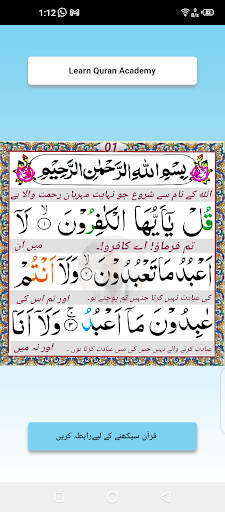 1:12
Learn Quran Academy
01
بِسْمِ اللهِ الرَّحْمٰنِ الرَّحِيْمِ
الله کے نام سے شروع جو نہایت مہربان رحمت والا ہے
قُلْ يٰۤاَيُّهَا الْكٰفِرُوْنَ ۙ۝۱ لَاۤ
تم فرماؤ! اے کافرو!۔ میں ان
اَعْبُدُ مَا تَعْبُدُوْنَ ۙ۝۲ وَلَاۤ اَنْتُمْ
کی عبادت نہیں کرتا جنہیں تم پوجتے ہو۔ اور تم اس کی
عٰبِدُوْنَ مَاۤ اَعْبُدُ ۚ۝۳ وَلَاۤ اَنَا
عبادت کرنے والے نہیں جس کی میں عبادت کرتا ہوں۔ اور نہ میں
قرآن سیکھنے کے لیےرابطہ کریں